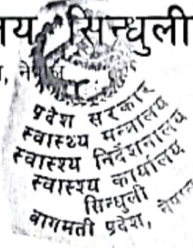 य सिन्धुली
प्रदेश सरकार
स्वास्थ्य मन्त्रालय
स्वास्थ्य निर्देशनालय
स्वास्थ्य कार्यालय
सिन्धुली
बागमती प्रदेश, नेपाल